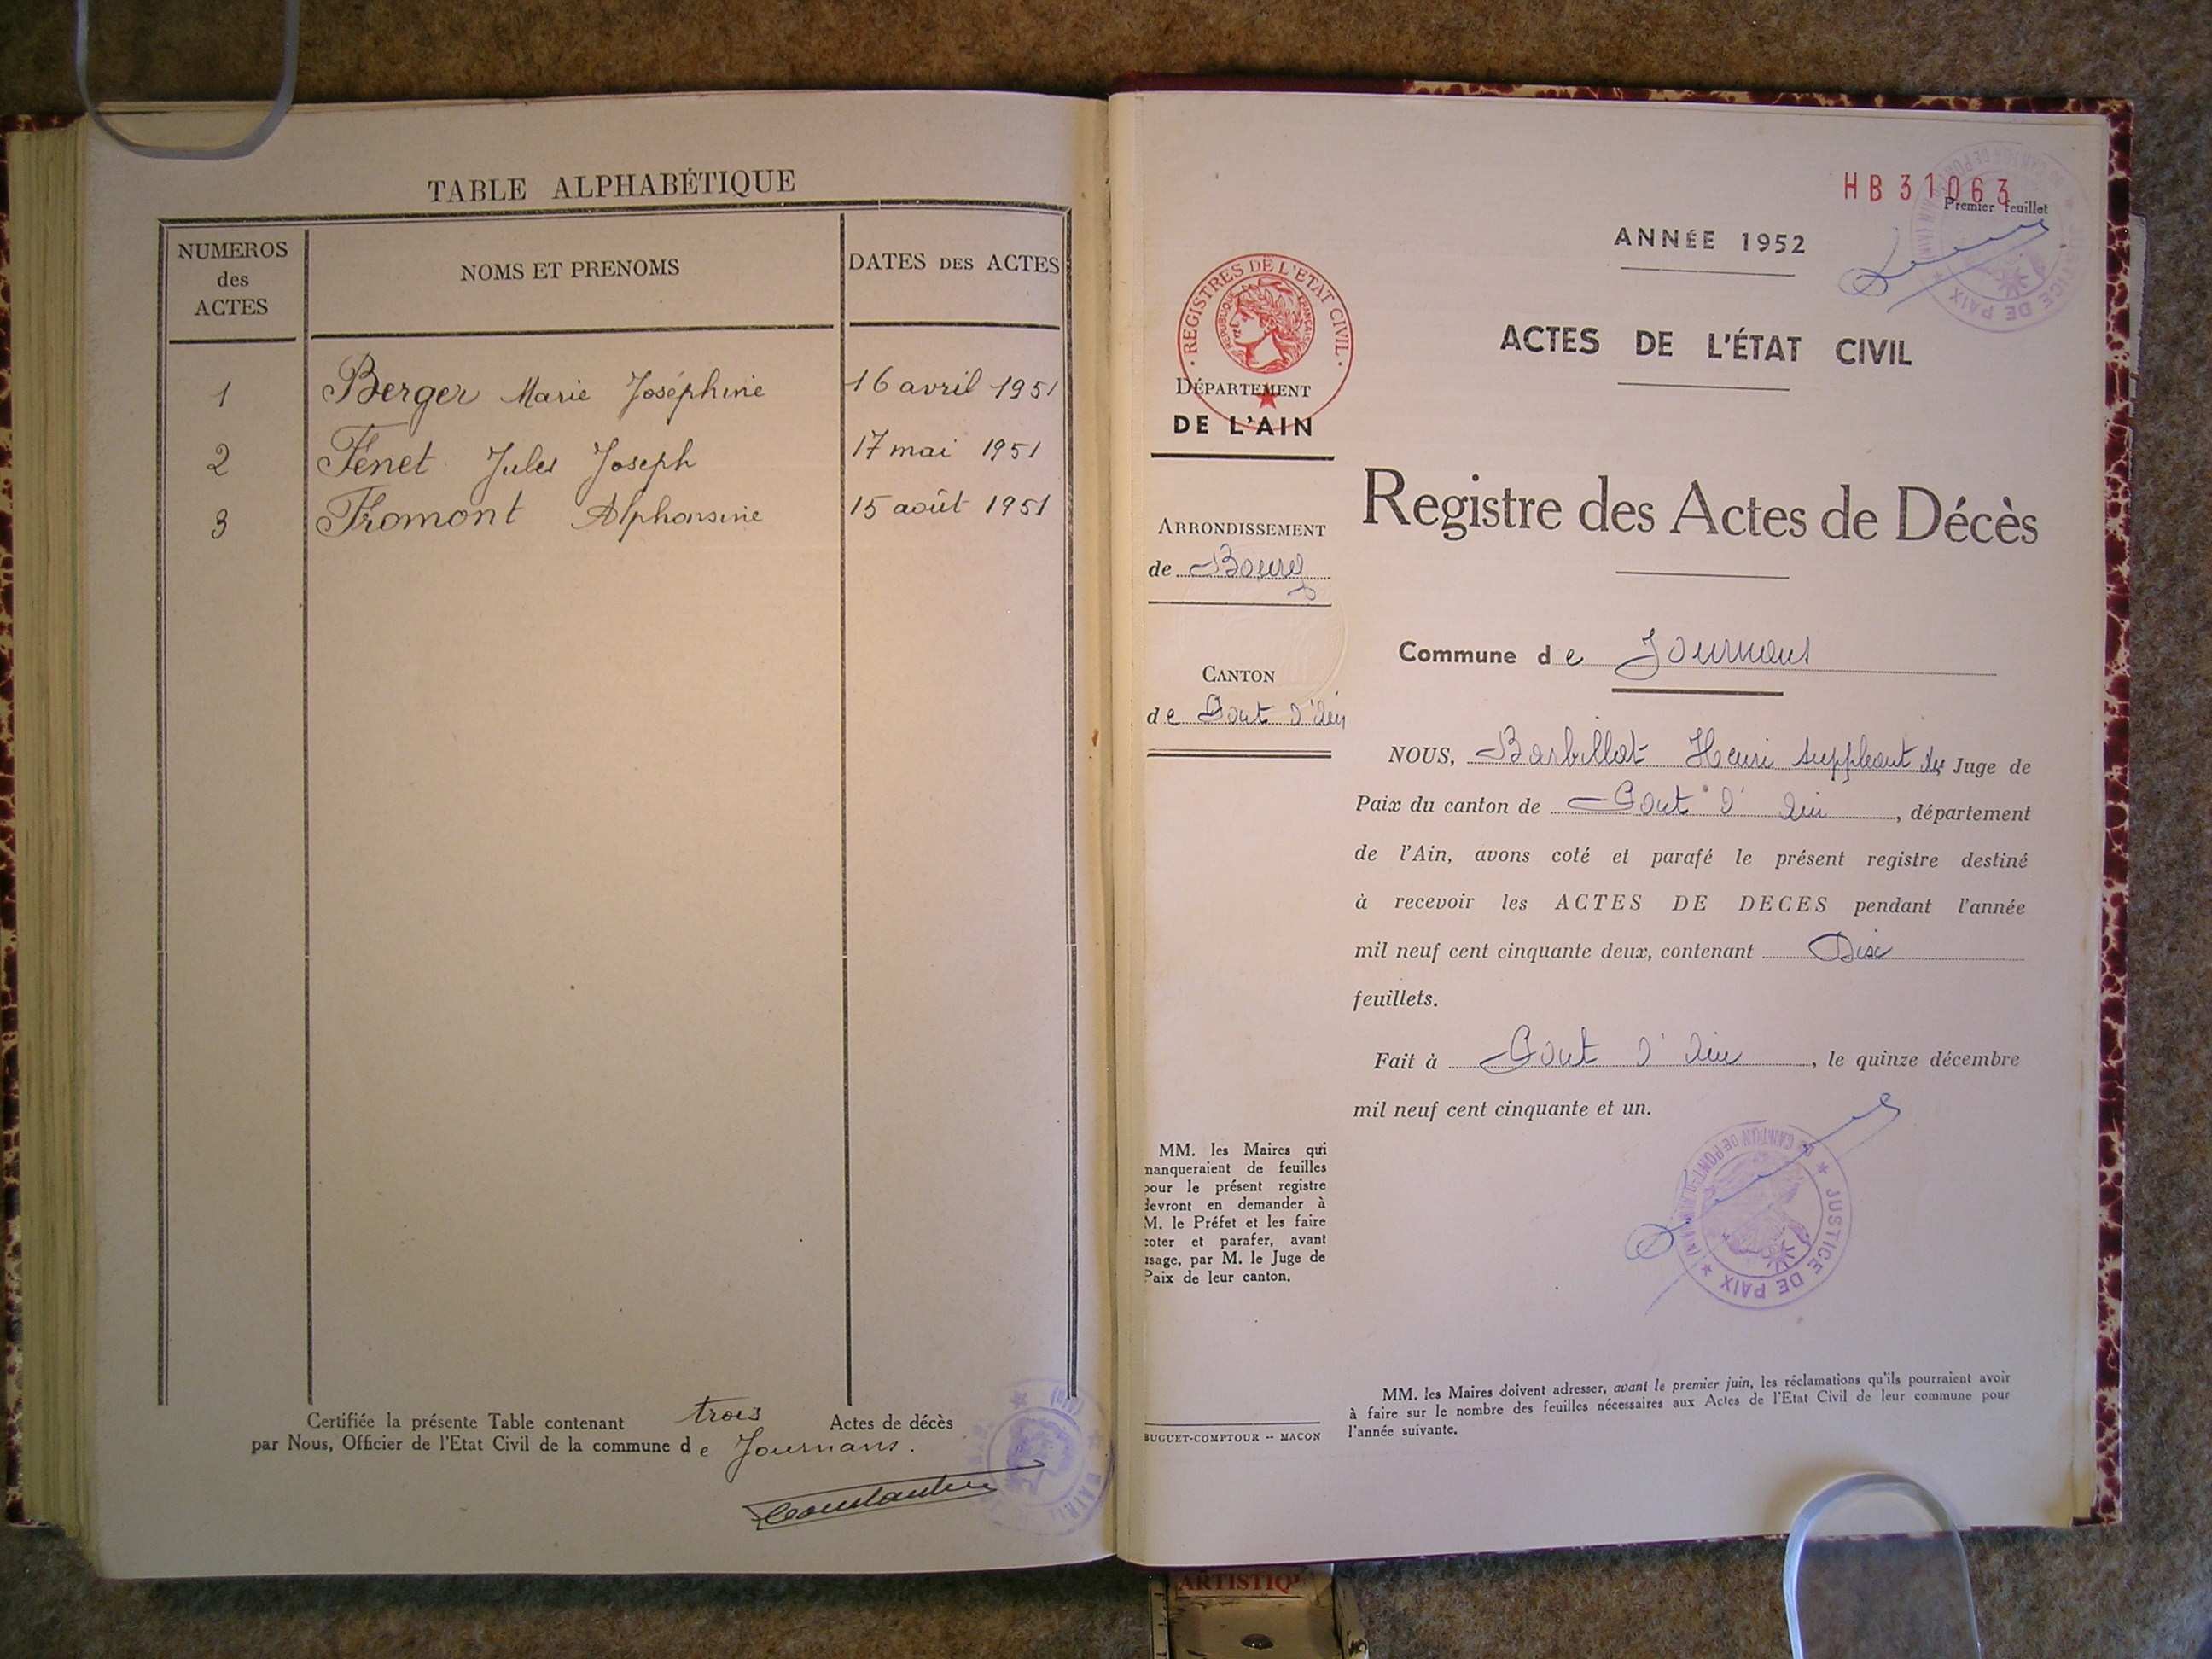 TABLE ALPHABÉTIQUE
NUMEROS des ACTES
NOMS ET PRENOMS
DATES DES ACTES
1 Berger Marie Joséphine 16 avril 1951
2 Fenet Jules Joseph 17 mai 1951
3 Fromont Alphonsine 15 août 1951
Certifiée la présente Table contenant trois Actes de décès
par Nous, Officier de l'Etat Civil de la commune de Journans.
Constantin
HB31063
Premier feuillet
ANNÉE 1952
REGISTRES DE L'ETAT CIVIL
REPUBLIQUE FRANÇAISE
DÉPARTEMENT
DE L'AIN
ARRONDISSEMENT
de Bourg
CANTON
de Pont d'Ain
MM. les Maires qui
manqueraient de feuilles
pour le présent registre
devront en demander à
M. le Préfet et les faire
coter et parafer, avant
usage, par M. le Juge de
Paix de leur canton.
BUGUET-COMPTOUR -- MACON
ACTES DE L'ÉTAT CIVIL
Registre des Actes de Décès
Commune de Journans
NOUS, Barbillat Henri suppléant du Juge de
Paix du canton de Pont d'Ain, département
de l'Ain, avons coté et parafé le présent registre destiné
à recevoir les ACTES DE DECES pendant l'année
mil neuf cent cinquante deux, contenant Dix
feuillets.
Fait à Pont d'Ain, le quinze décembre
mil neuf cent cinquante et un.
JUSTICE DE PAIX
MM. les Maires doivent adresser, avant le premier juin, les réclamations qu'ils pourraient avoir
à faire sur le nombre des feuilles nécessaires aux Actes de l'Etat Civil de leur commune pour
l'année suivante.
ARTISTIQ